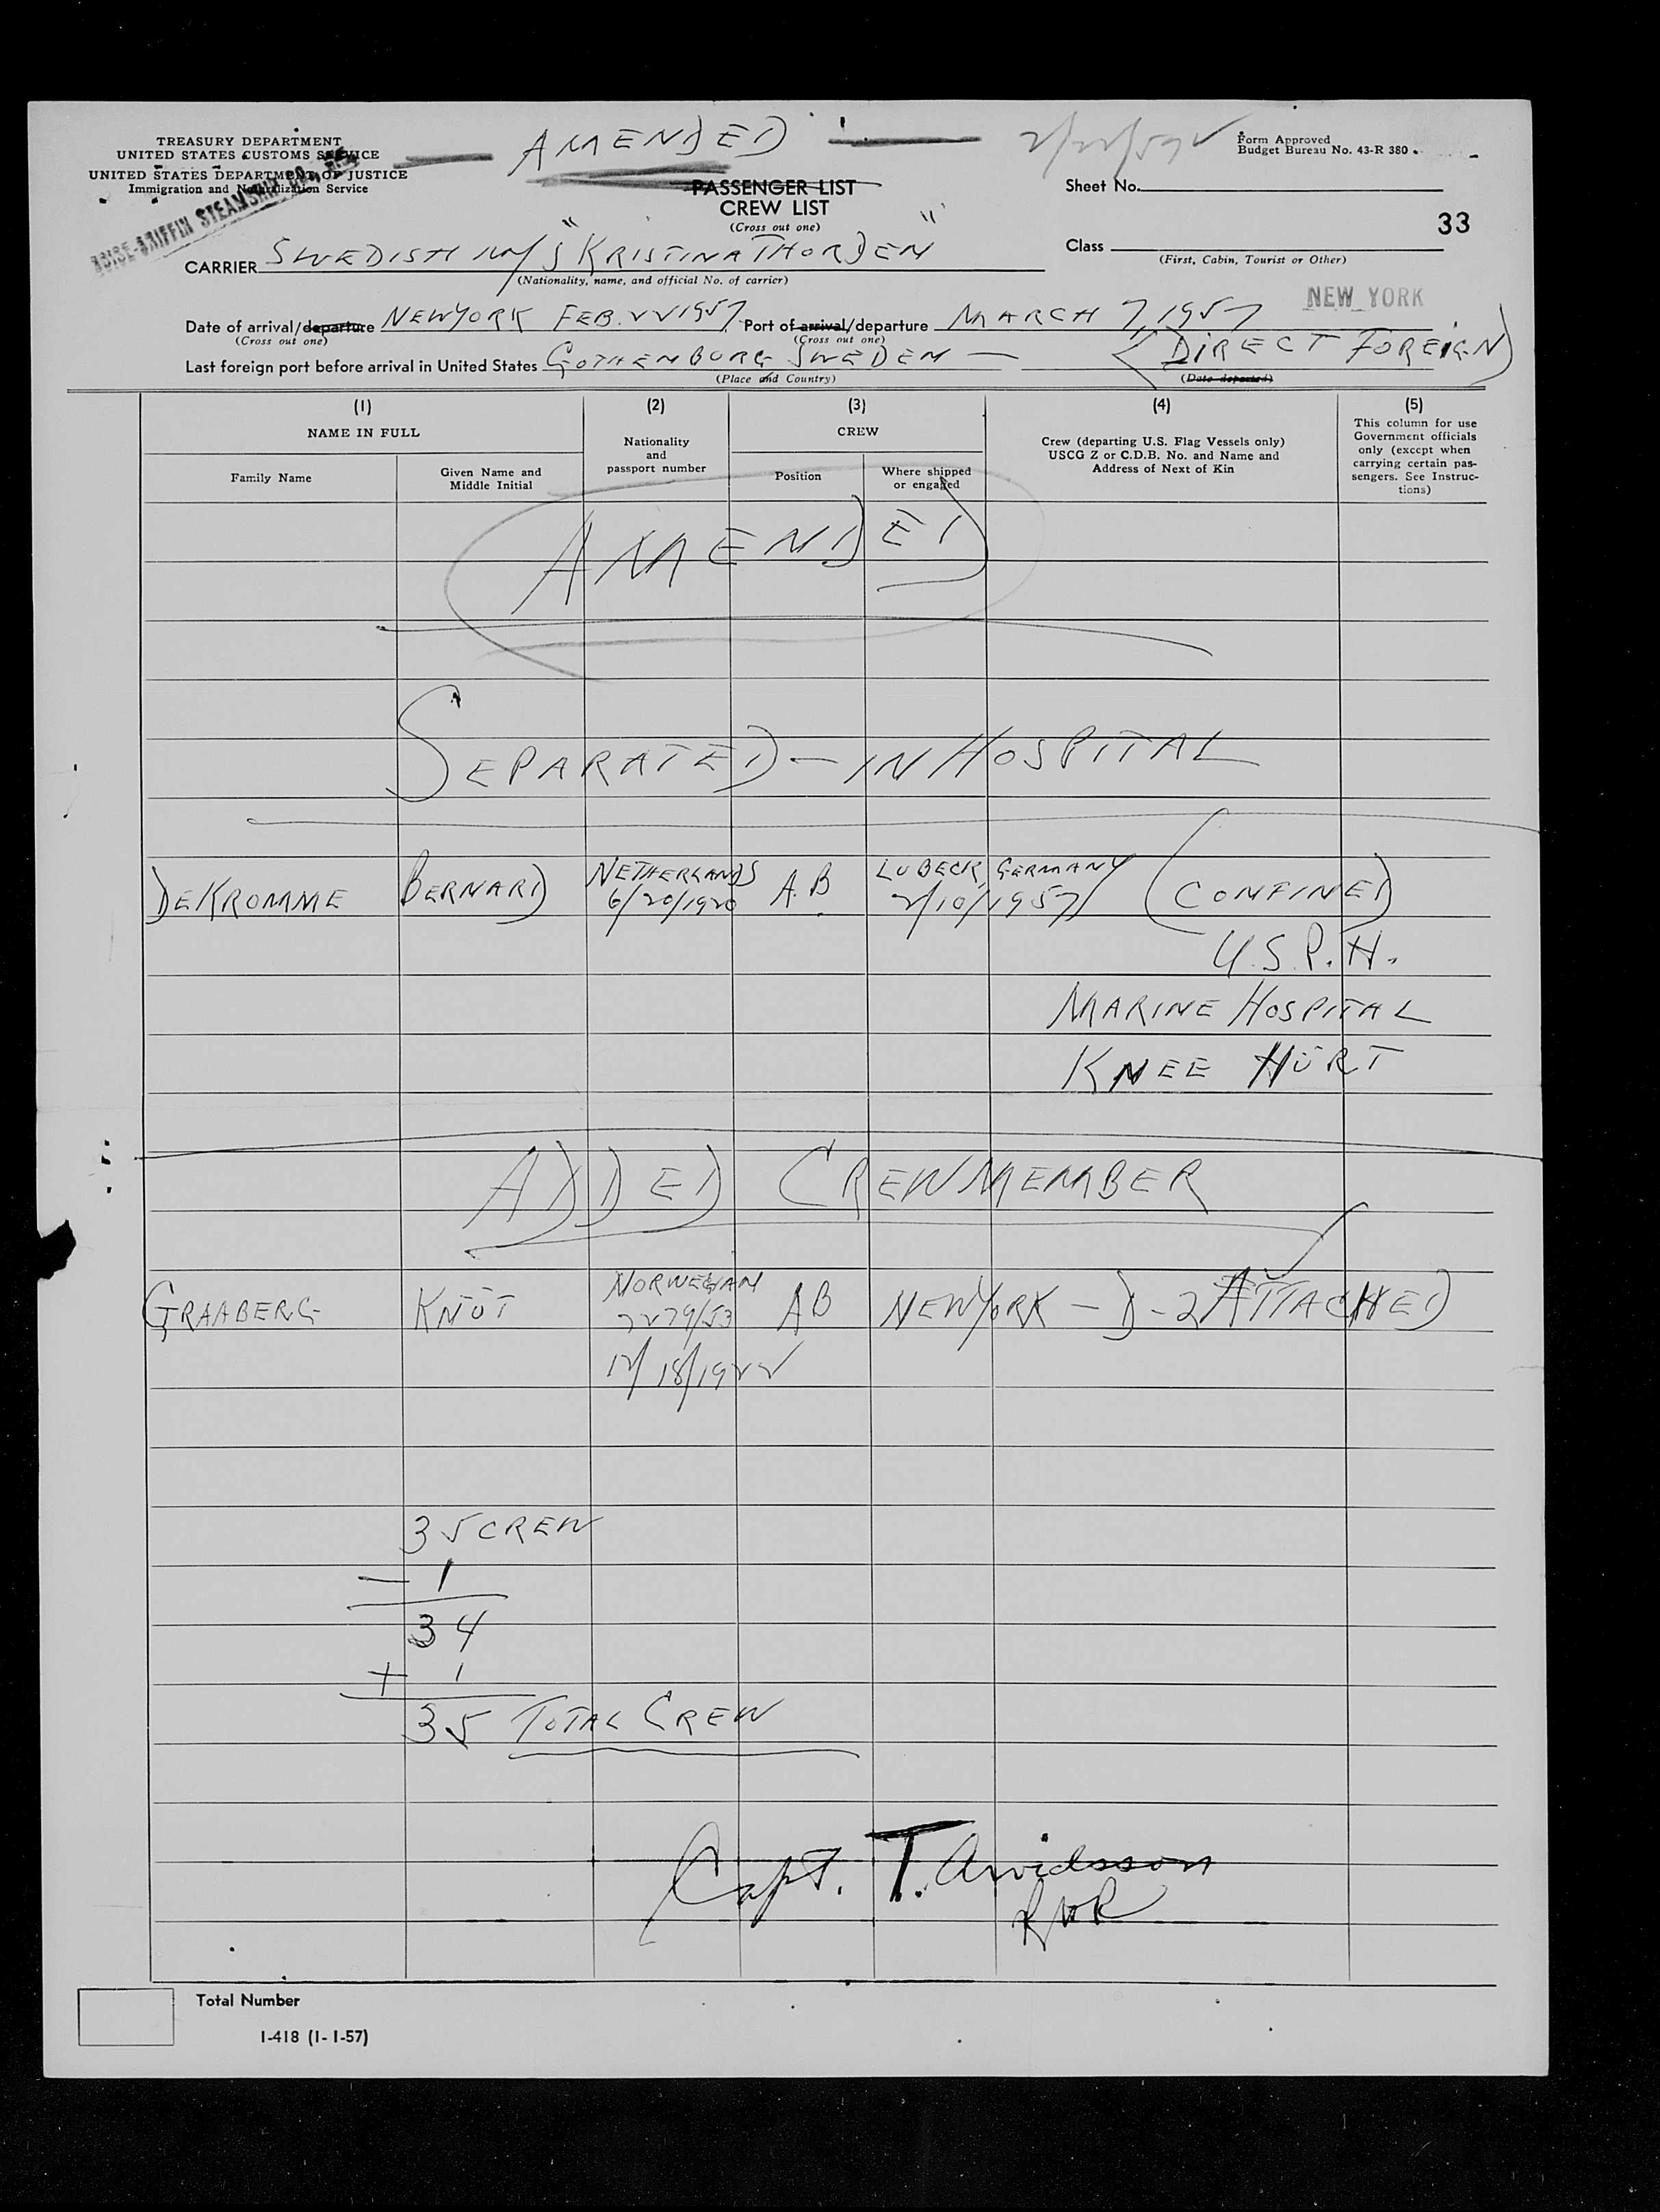 TREASURY DEPARTMENT
UNITED STATES CUSTOMS SERVICE
UNITED STATES DEPARTMENT OF JUSTICE
Immigration and Naturalization Service
AMENDED
Form Approved
Budget Bureau No. 43-R 380
PASSENGER LIST
CREW LIST
(Cross out one)
Sheet No.
33
Class
(First, Cabin, Tourist or Other)
CARRIER SWEDISH M/S "KRISTINA THORDEN"
(Nationality, name, and official No. of carrier)
NEW YORK
Date of arrival/departure NEW YORK FEB. 22 1957 Port of arrival/departure MARCH 7, 1957
(Cross out one) (Cross out one)
Last foreign port before arrival in United States GOTHENBURG SWEDEN — (DIRECT FOREIGN)
(Place and Country) (Date departed)
(1) (2) (3) (4) (5)
NAME IN FULL
Family Name
Given Name and
Middle Initial
Nationality
and
passport number
CREW
Position
Where shipped
or engaged
Crew (departing U.S. Flag Vessels only)
USCG Z or C.D.B. No. and Name and
Address of Next of Kin
This column for use
Government officials
only (except when
carrying certain pas-
sengers. See Instruc-
tions)
AMENDED
SEPARATED — IN HOSPITAL
DEKROMME BERNARD NETHERLANDS A.B LUBECK, GERMANY (CONFINED)
6/20/1920 2/10/1957
U.S.P.H.
MARINE HOSPITAL
KNEE HURT
ADDED CREWMEMBER
GRAABERG KNUT NORWEGIAN AB NEW YORK — D-2 ATTACHED
2279/53
12/18/1922
35 CREW
— 1
34
+ 1
35 TOTAL CREW
Capt. T. Arvidsson
Total Number
I-418 (1-1-57)